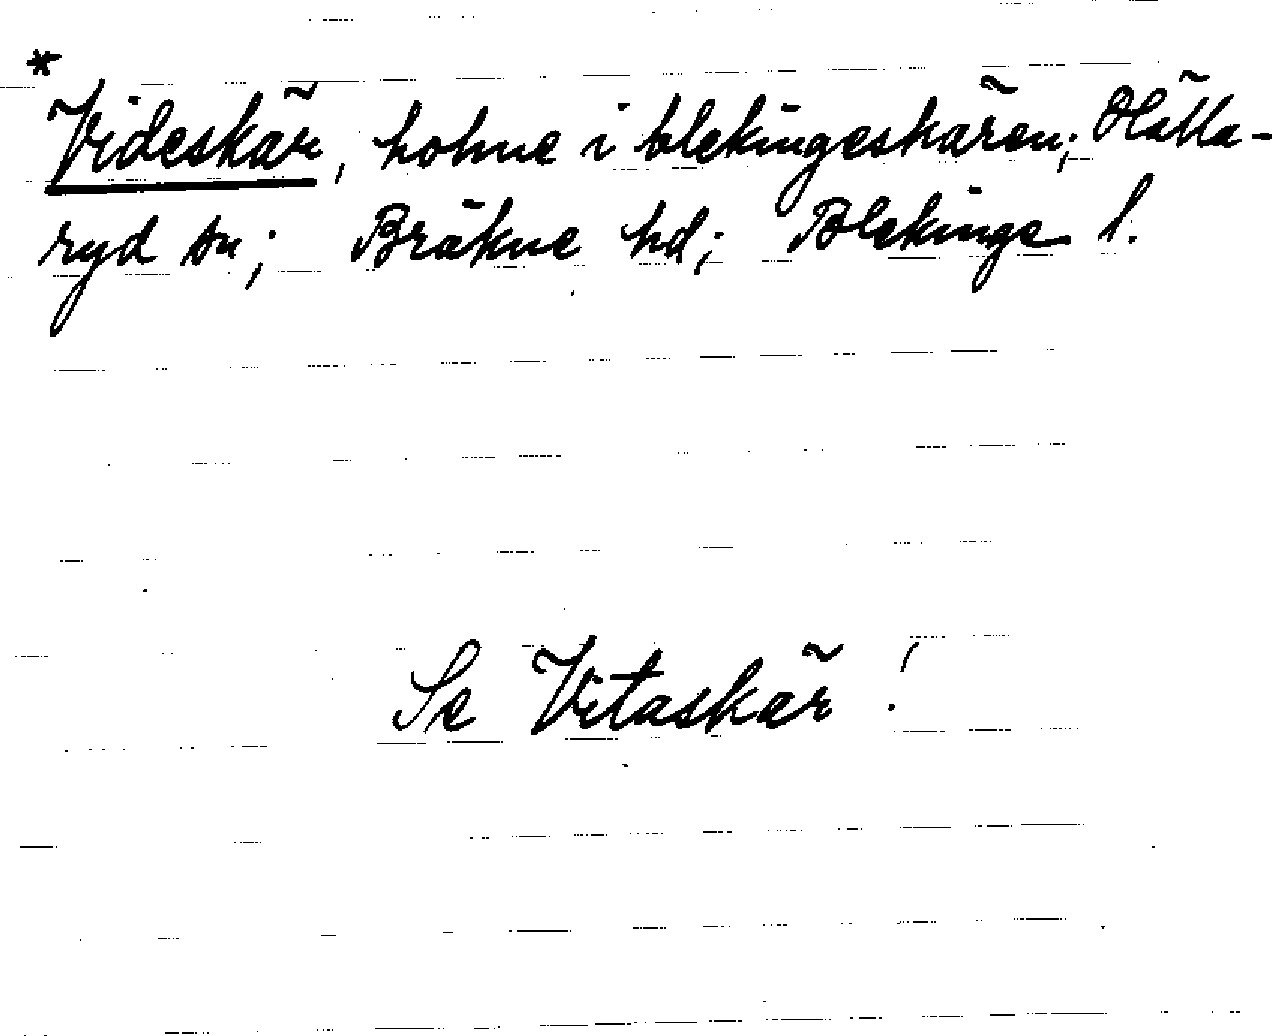 *
Videskär, holme i blekingeskären; Hälla-
ryd sn; Bräkne hd; Blekinge l.
Se Vitaskär !